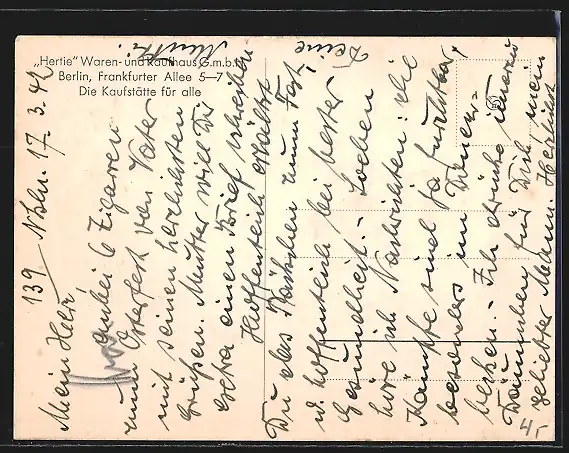 „Hertie" Waren- und Kaufhaus G.m.b.H.
Berlin, Frankfurter Allee 5—7
Die Kaufstätte für alle
139 Nkln. 17.3.42
Mein Herz,
anbei 6 Zigarren
zum Osterfest von Vater
mit seinen herzlichsten
Grüßen. Mutter will Dir
extra einen Brief schreiben.
Hoffentlich erhältst
Du das Päckchen zum Fest,
u. hoffentlich bei bester
Gesundheit. - Soeben
höre ich Nachrichten: die
Kämpfe sind ja furchtbar,
besonders im Donez-
becken. - Ich drücke
Däumchen für Dich mein
geliebter Mann. Herzlichst
Deine
Mutzi.
4.-